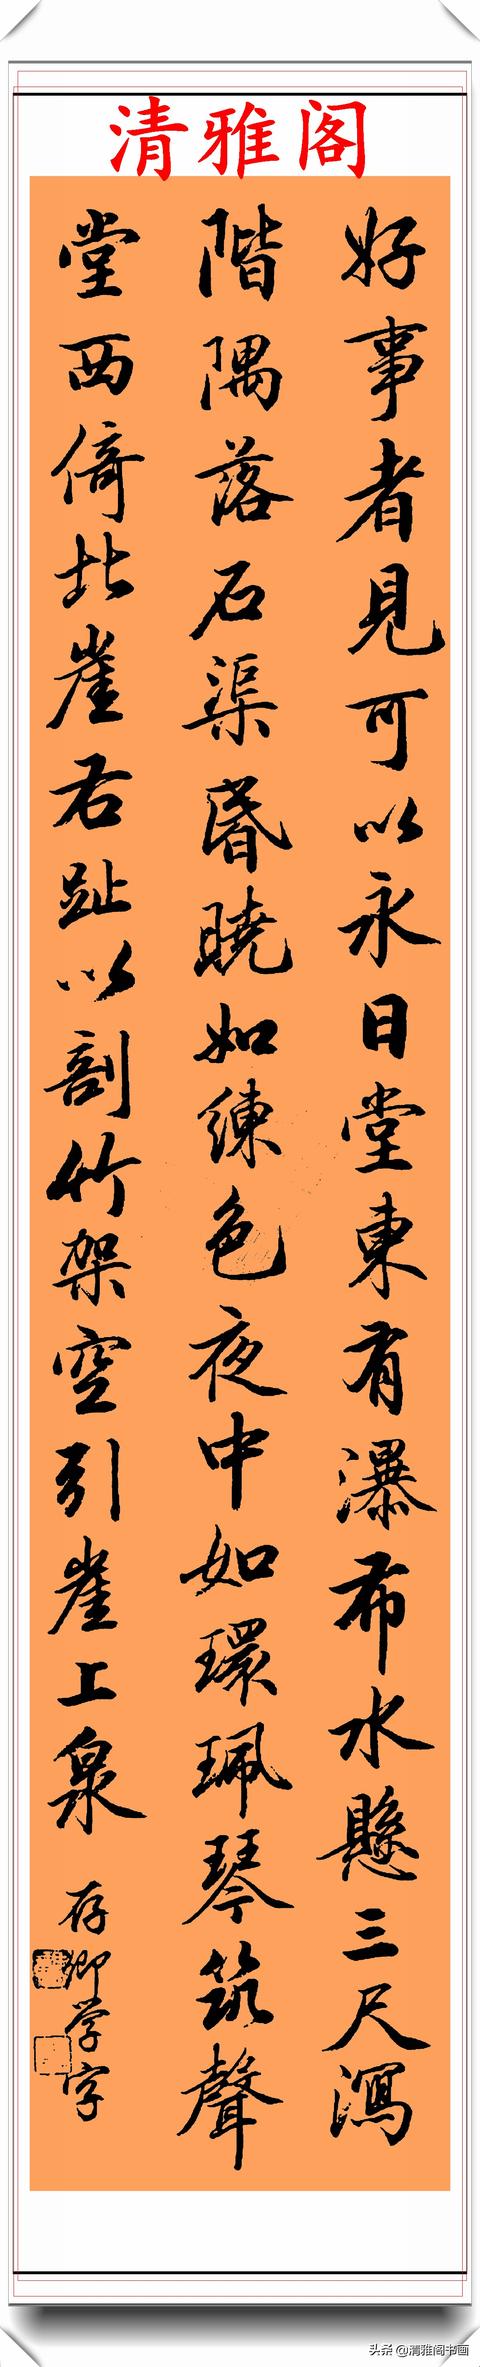 清雅阁
好事者見可以永日堂東有瀑布水懸三尺瀉
階隅落石渠昬曉如練色夜中如環珮琴筑聲
堂西倚北崖右趾以剖竹架空引崖上泉
存卿学字
头条 @清雅阁书画